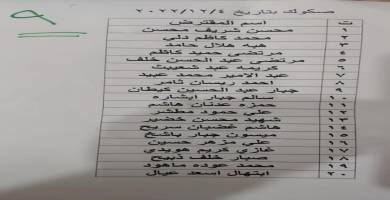 صكوك بتاريخ ٢٠٢٢/١٢/٤
ت اسم المقترض
١ محسن شريف محسن
٢ محمد كاظم دلي
٣ هبه هلال حامد
٤ مرتضى حميد كاظم
٥ مرتضى عبد الحسن خلف
٦ كريمه عبد شحيت
٧ عبد الامير محمد عبيد
٨ احمد ريسان ثامر
٩ جبار عبد الحسين كيطان
١٠ سالم جبار
١١ حمزه عدنان هاشم
١٢ علي حمود مطشر
١٣ شهيد محسن خضير
١٤ هاشم غضبان سريح
١٥ ميسون جبار
١٦ علي مزهر حسين
١٧ غازي كريم هويدي
١٨ صبار خلف ذبيح
١٩ محمد عوده ماهود
٢٠ ابتهال اسعد عيال